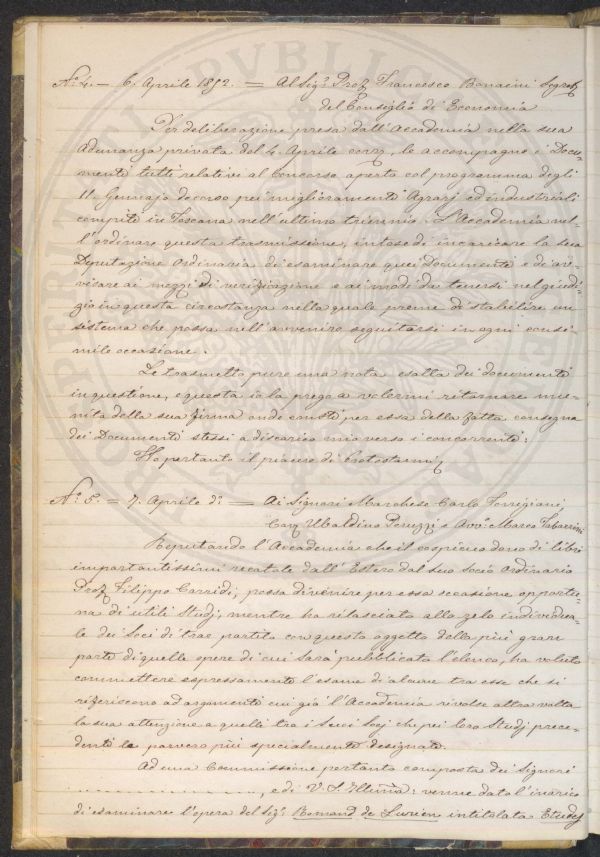 N.º 4. — 6. Aprile 1852. = Al Sig.r Prof. Francesco Bonaini Segret.
del Consiglio di Economia
Per deliberazione presa dall'Accademia nella sua
Adunanza privata del 4. Aprile corr., le accompagno i Docu-
menti tutti relativi al Concorso aperto col programma degli
11. Gennajo decorso pei miglioramenti Agrarj ed industriali
compiti in Toscana nell'ultimo triennio. L'Accademia nel-
l'ordinare questa trasmissione, intese di incaricare la sua
Deputazione Ordinaria di esaminare quei documenti e di av-
visare ai mezzi di verificazione e ai modi da tenersi nel giudi-
zio in questa circostanza nella quale preme di stabilire un
sistema che possa nell'avvenire seguitarsi in ogni consi-
mile occasione.
Le trasmetto pure una nota esatta dei documenti
in questione, e questa io la prego a volermi ritornare mu-
nita della sua firma onde consti per essa della fatta consegna
dei Documenti stessi a discarico mio verso i concorrenti:
Ho pertanto il piacere di Protestarmi
N.º 5. = 7. Aprile d.º = Ai Signori Marchese Carlo Torrigiani,
Cav. Ubaldino Peruzzi e Avv.º Marco Tabarrini
Reputando l'Accademia che il cospicuo dono di libri
importantissimi recatole dall'Estero dal suo Socio Ordinario
Prof. Filippo Corridi, possa divenire per essa occasione opportu-
na di utili Studj, mentre ha rilasciato allo zelo individua-
le dei Soci di trar partito con questo oggetto della più gran
parte di quelle opere di cui sarà pubblicato l'elenco, ha voluto
commettere espressamente l'esame di alcune tra esse che si
riferiscono ad argomenti cui già l'Accademia rivolse altra volta
la sua attenzione a quelli tra i Suoi Socj che pei loro Studj prece-
denti le parvero più specialmente designati.
Ad una Commissione pertanto composta dei Signori
........................, e di V. S. Illma: venne dato l'incarico
di esaminare l'opera del Sig.r Romand de intitolata Etudes